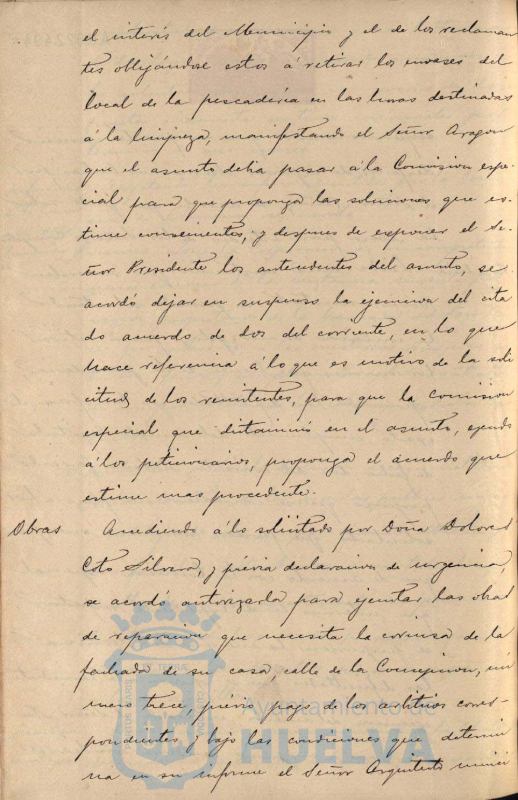 el interés del Municipio y el de los reclaman
tes obligándose estos á retirar los envases del
local de la pescadería en las horas destinadas
á la limpieza, manifestando el Señor Aragon
que el asunto debia pasar á la Comision espe-
cial para que proponga las soluciones que es-
time convenientes, y despues de exponer el Se-
ñor Presidente los antecedentes del asunto, se
acordó dejar en suspenso la ejecucion del cita
do acuerdo de dos del corriente, en lo que
hace referencia á lo que es motivo de la soli
citud de los remitentes, para que la Comision
especial que dictaminó en el asunto, oyendo
á los peticionarios, proponga el acuerdo que
estime mas procedente.
Obras Accediendo á lo solicitado por Doña Dolores
Coto Silvera, y prévia declaracion de urgencia,
se acordó autorizarla para ejecutar las obras
de reparacion que necesita la cornisa de la
fachada de su casa, calle de la Concepcion, nú
mero trece, prévio pago de los arbitrios corres-
pondientes y bajo las condiciones que determi
na en su informe el Señor Arquitecto munici
Ayuntamiento de
HUELVA